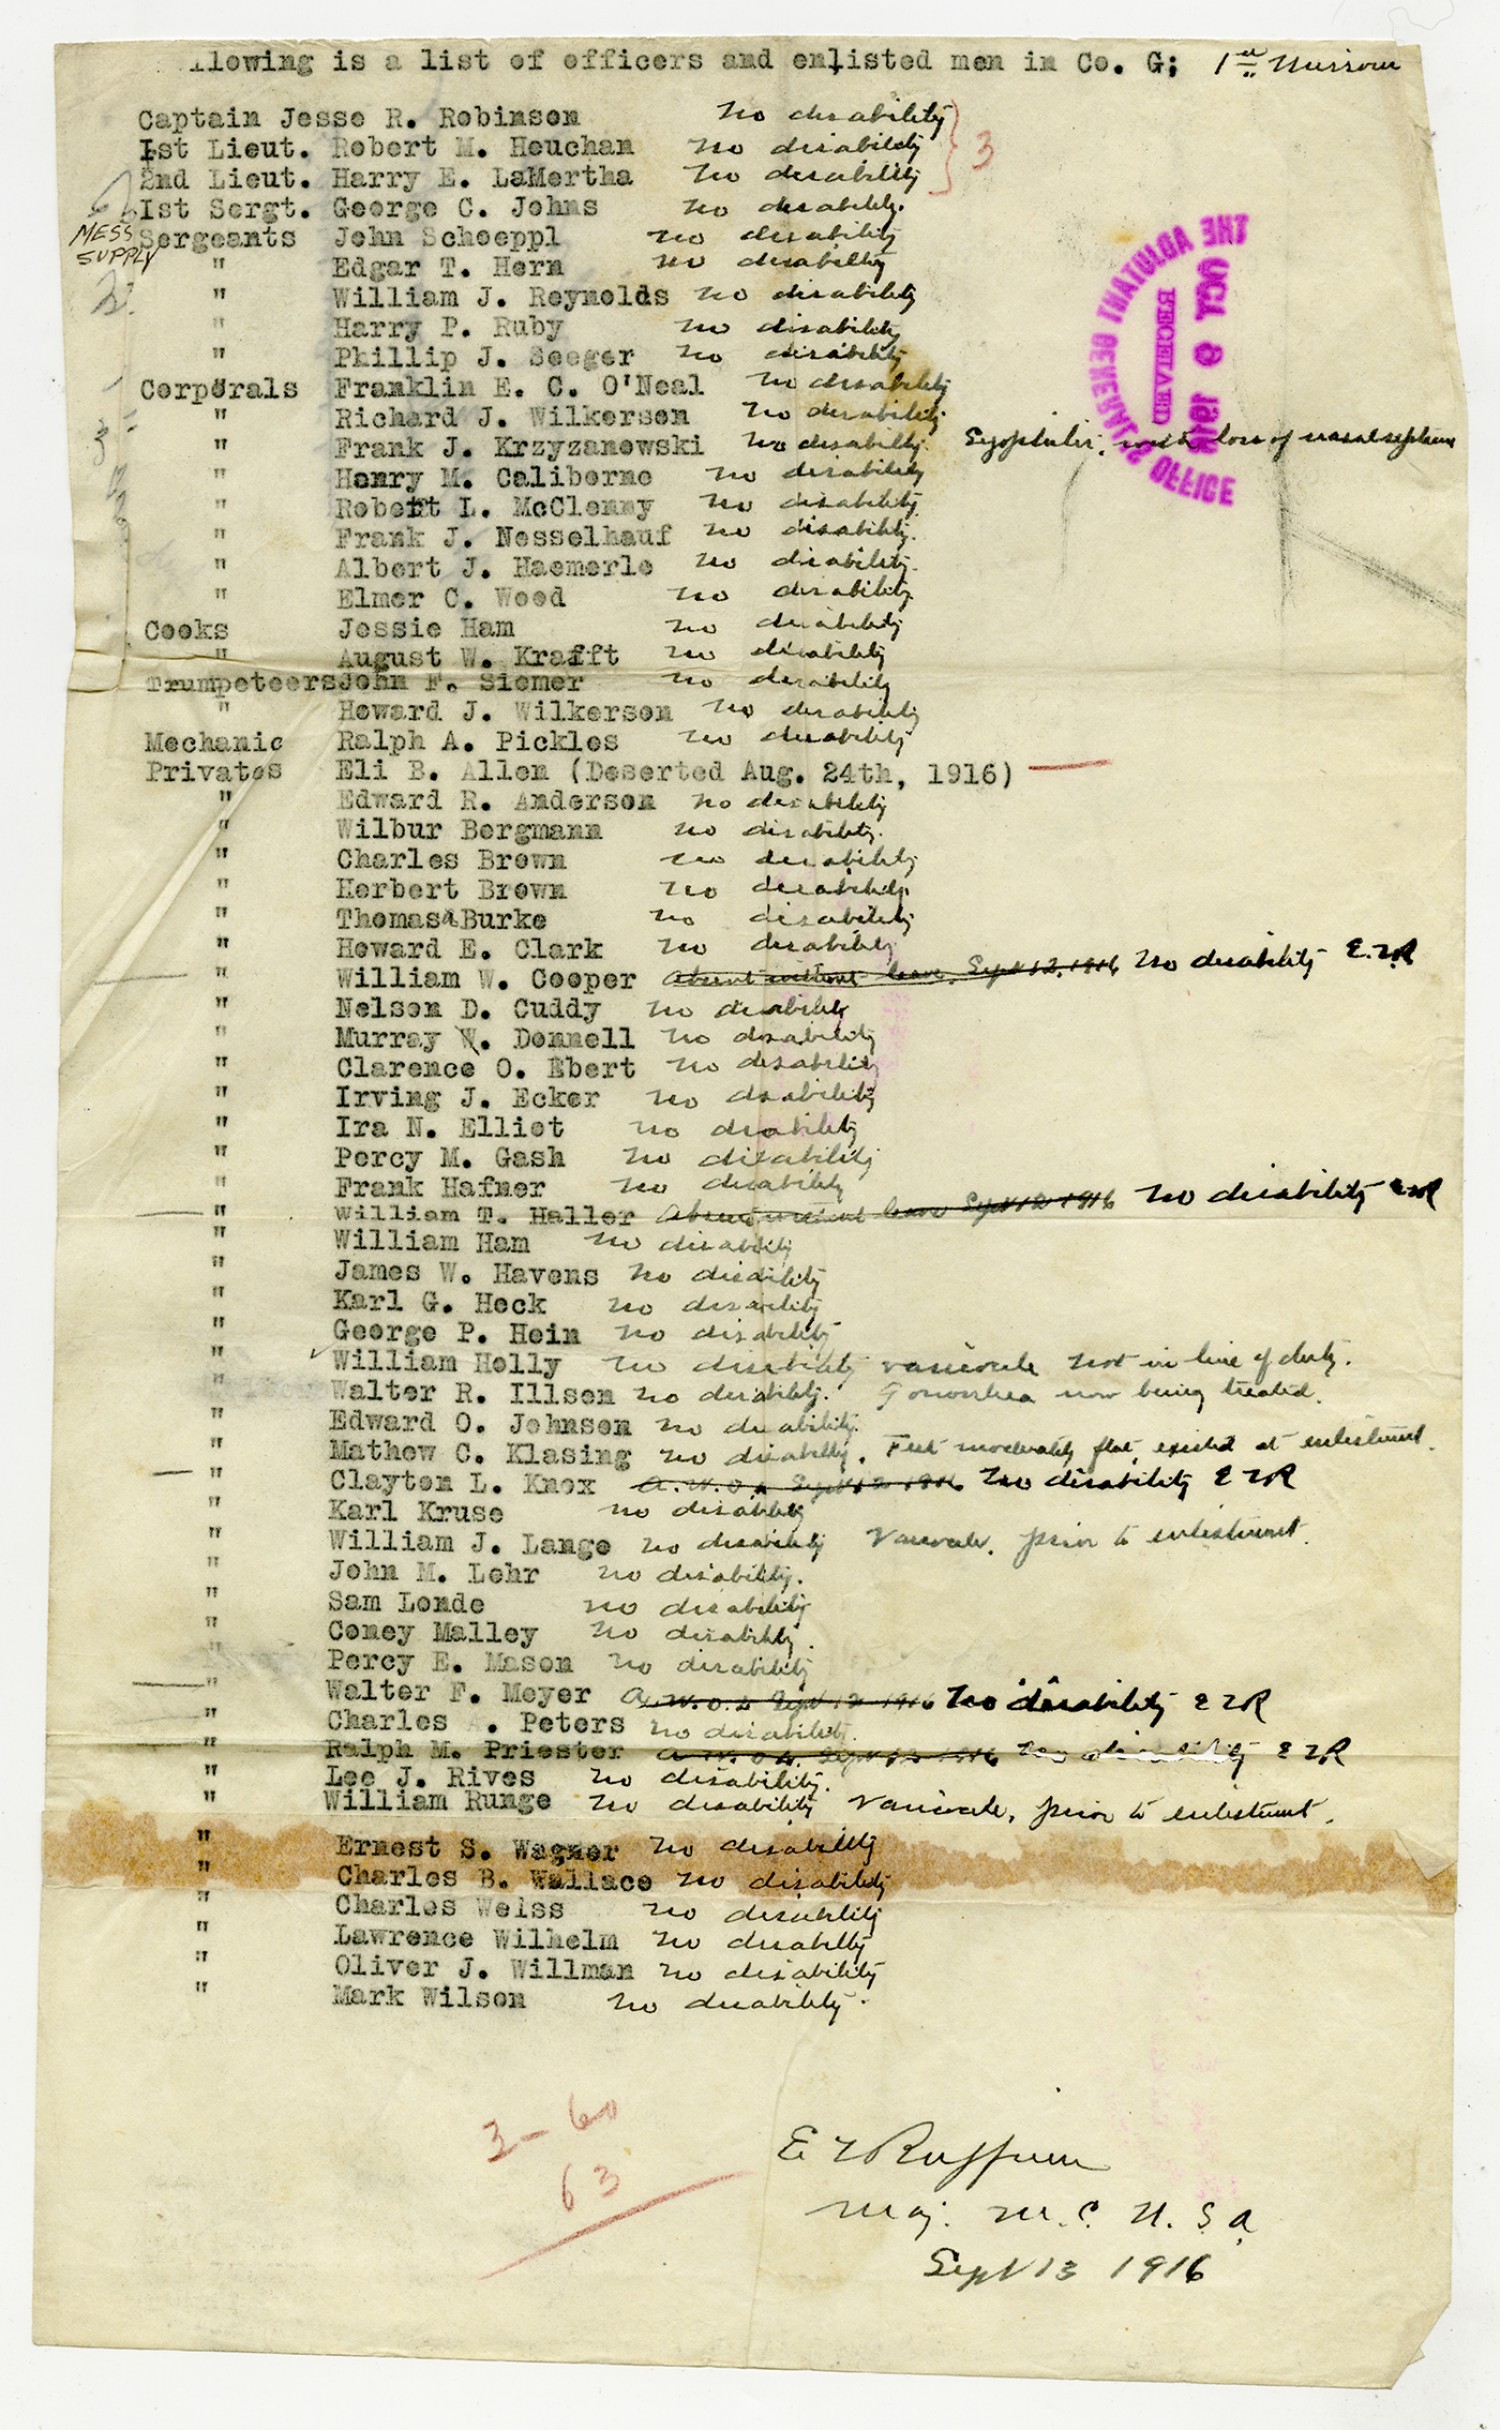 llowing is a list of officers and enlisted men in Co. G; 1st Missouri
Captain Jesse R. Robinson No disability
1st Lieut. Robert M. Houchan No disability 3
2nd Lieut. Harry E. LaMertha No disability
1st Sergt. George C. Johns No disability.
MESS Sergeants John Schoeppl No disability
SUPPLY " Edgar T. Horn No disability
2. " William J. Reynolds No disability
" Harry P. Ruby No disability
" Phillip J. Seeger No disability
Corporals Franklin E. C. O'Neal No disability
" Richard J. Wilkerson No disability
3 " Frank J. Krzyzanowski No disability. Syphilis, with loss of nasal septum
" Henry M. Caliborne No disability
" Robert L. McClenny No disability
" Frank J. Nesselhauf No disability.
" Albert J. Haemerle No disability.
" Elmer C. Wood No disability
Cooks Jessie Ham No disability
" August W. Krafft No disability
Trumpeteers John F. Siemer No disability
" Howard J. Wilkerson No disability
Mechanic Ralph A. Pickles No disability
Privates Eli B. Allen (Deserted Aug. 24th, 1916)
" Edward R. Anderson No disability
" Wilbur Bergmann No disability.
" Charles Brown No disability
" Herbert Brown No disability
" Thomas A Burke No disability
" Howard E. Clark No disability
" William W. Cooper Absent without leave. Sept 12, 1916 No disability E.L.R
" Nelson D. Cuddy No disability
" Murray W. Donnell No disability
" Clarence O. Ebert No disability
" Irving J. Ecker No disability
" Ira N. Elliot No disability
" Percy M. Gash No disability
" Frank Hafner No disability
" William T. Haller Absent without leave Sept 12 1916 No disability ELR
" William Ham No disability
" James W. Havens No disability
" Karl G. Heck No disability
" George P. Hein No disability
" William Holly No disability varicocele not in line of duty.
" Walter R. Illsen No disability. Gonorrhea now being treated.
" Edward O. Johnson No disability.
" Mathew C. Klasing No disability. Feet moderately flat, existed at enlistment.
" Clayton L. Knox A.W.O.L Sept 12 1916 No disability ELR
" Karl Kruse No disability
" William J. Lange No disability Varicocele. prior to enlistment.
" John M. Lehr No disability.
" Sam Londe No disability
" Coney Malley No disability.
" Percy E. Mason No disability
" Walter F. Meyer A.W.O.L Sept 12 1916 No disability ELR
" Charles . Peters No disability.
" Ralph M. Priester A.W.O.L. Sept 12 1916 No disability ELR
" Lee J. Rives No disability.
" William Runge No disability Varicocele, prior to enlistment.
" Ernest S. Wagner No disability
" Charles B. Wallace No disability
" Charles Weiss No disability
" Lawrence Wilhelm No disability
" Oliver J. Willman No disability
" Mark Wilson No disability.
THE ADJUTANT GENERAL'S OFFICE
OCT 9 1916
RECEIVED
3 - 60
63
E L Ruffner
Maj. M.C. U.S.A.
Sept 13 1916